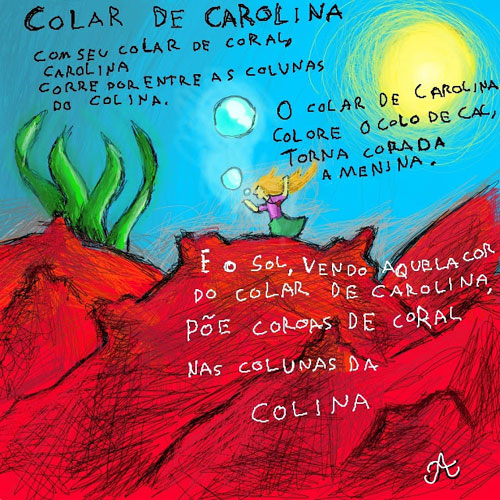 COLAR DE CAROLINA
COM SEU COLAR DE CORAL,
CAROLINA
CORRE POR ENTRE AS COLUNAS
DO COLINA.
O COLAR DE CAROLINA
COLORE O COLO DE CAL,
TORNA CORADA
A MENINA.
E O SOL, VENDO AQUELA COR
DO COLAR DE CAROLINA,
PÕE COROAS DE CORAL
NAS COLUNAS DA
COLINA